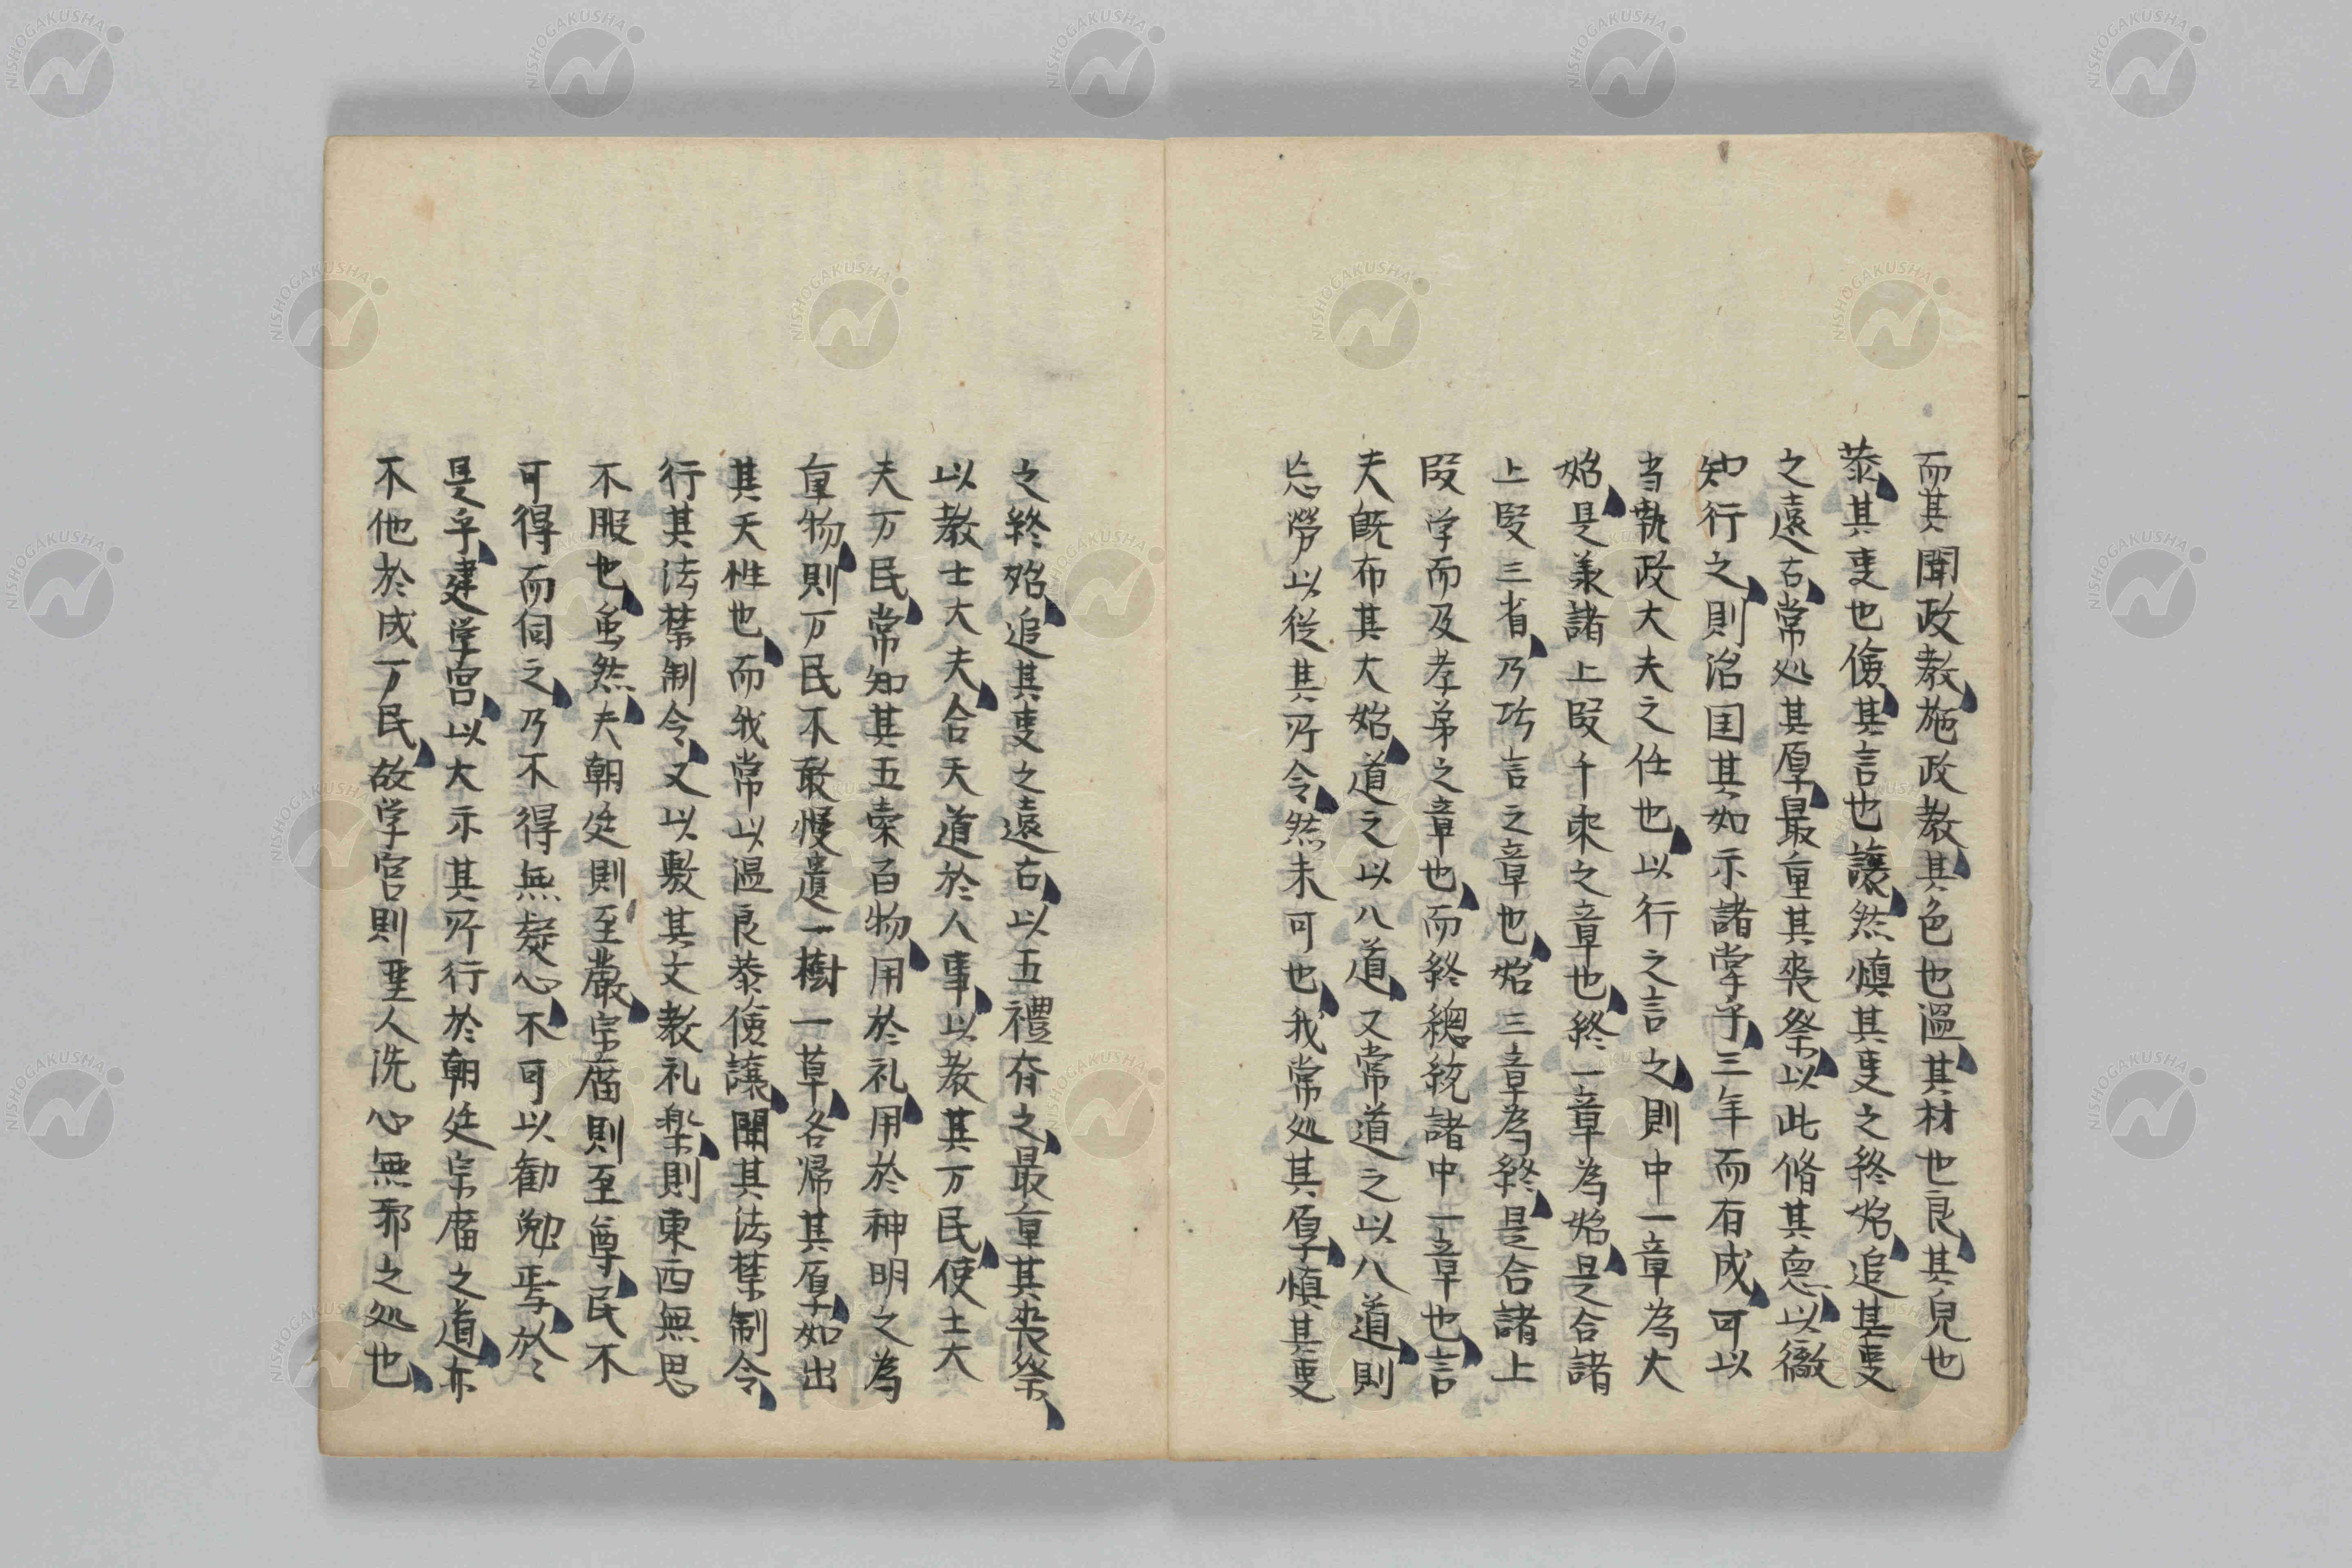 而其聞政教施政教其色也温其材也良其皃也
㳟其叓也儉其言也譲然慎其叓之終始追其叓
之遠古常処其厚最重其喪祭以此脩其悳以徼
知行之則治国其如示諸掌乎三年而有成可以
当執政大夫之任也以行之言之則中一章為大
始是兼諸上段千乗之章也終一章為始是合諸
上段三省乃巧言之章也始三章為終是合諸上
段学而及孝弟之章也而終總統諸中一章也言
夫既布其大始道之以八道又常道之以八道則
忘勞以從其所令然未可也我常処其厚慎其叓
之終始追其叓之遠古以五禮脊之最重其喪祭
以教士大夫合天道於人事以教其万民使士大
夫万民常知其五索百物用於礼用於神明之為
重物則万民不敢慢遺一樹一草各帰其厚如出
其天性也而我常以温良㳟儉譲開其法禁制令
行其法禁制令又以敷其文教礼楽則東西無思
不服也虽然夫朝廷則至嚴宗庿則至尊民不
可得而伺之乃不得無疑心不可以勸勉焉於
是乎建学宮以大示其所行於朝廷宗庿之道亦
不他於成万民故学宮則聖人洗心無邪之処也
NISHOGAKUSHA